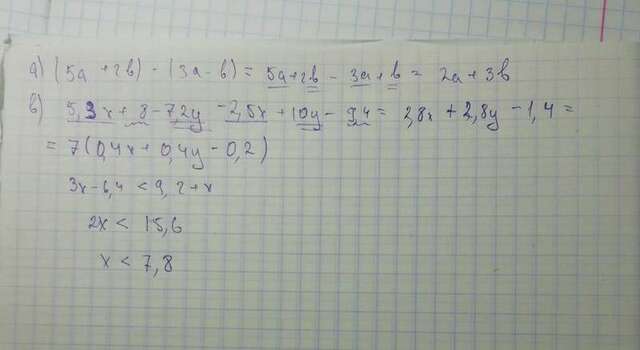 а) (5a + 2b) - (3a - b) = 5a + 2b - 3a + b = 2a + 3b
в) 5,3x + 8 - 7,2y - 2,5x + 10y - 9,4 = 2,8x + 2,8y - 1,4 =
= 7(0,4x + 0,4y - 0,2)
3x - 6,4 < 9,2 + x
2x < 15,6
x < 7,8